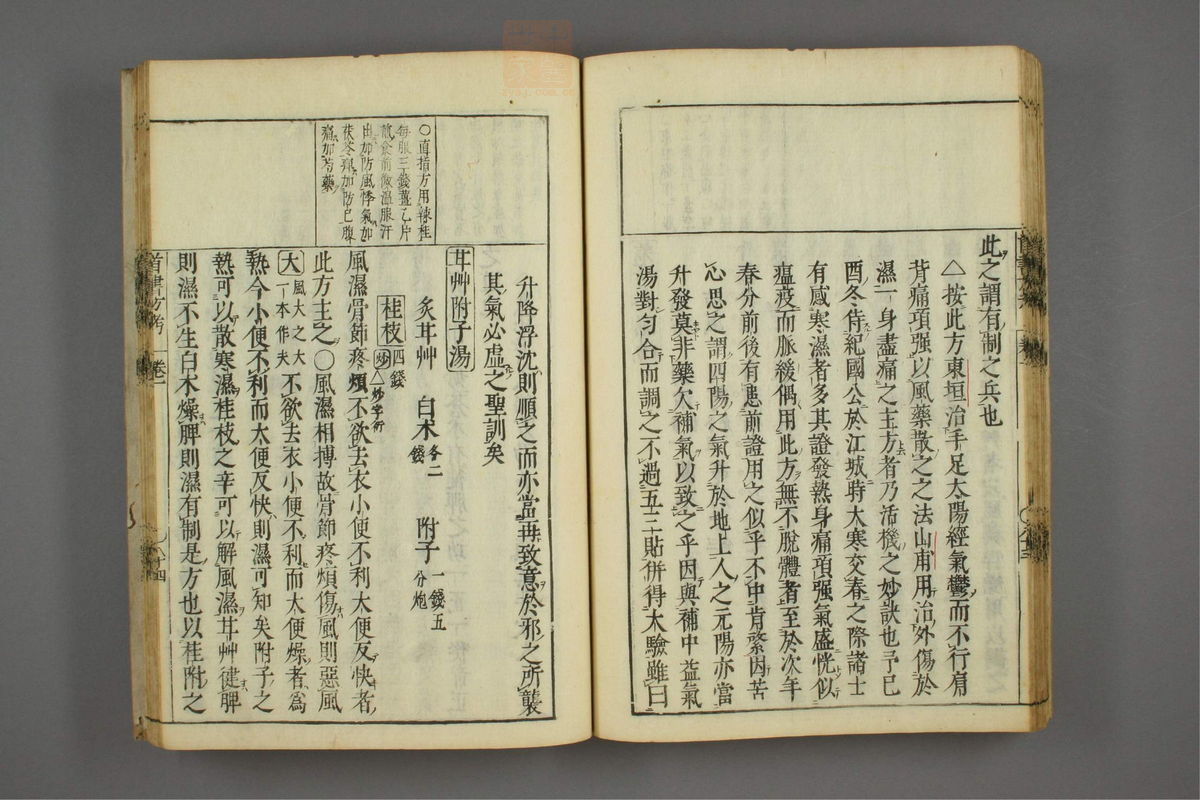 此之謂有制之兵也
△按此方東垣治手足太陽經氣鬱而不行肩
背痛項强以風藥散之之法山甫用治外傷於
濕一身盡痛之主方者乃活機之妙訣也予己
酉冬侍紀國公於江城時大寒交春之際諸士
有感寒濕者多其證發熱身痛項强氣盛恍似
瘟疫而脈緩偶用此方無不脫體者至於次年
春分前後有患前證用之似乎不中肯綮因苦
心思之謂四陽之氣升於地上人之元陽亦當
升發莫非藥欠補氣以致之乎因與補中益氣
湯對匀合而調之不過五三貼併得大驗雖曰
升降浮沈則順之而亦當再致意於邪之所襲
其氣必虛之聖訓矣
甘艸附子湯
炙甘艸 白朮各二錢 附子一錢五分炮
桂枝四錢炒△炒字衍
風濕骨節疼煩不欲去衣小便不利大便反快者
此方主之○風濕相搏故骨節疼煩傷風則惡風
大風大之大一本作夫不欲去衣小便不利而大便燥者爲
熱今小便不利而大便反快則濕可知矣附子之
熱可以散寒濕桂枝之辛可以解風濕甘艸健脾
則濕不生白朮燥脾則濕有制是方也以桂附之
○直指方用辣桂
每服三錢薑七片
煎食前微溫服汗
出加防風悸氣加
茯苓痺加防已腹
痛加芍藥
首書方考 卷一